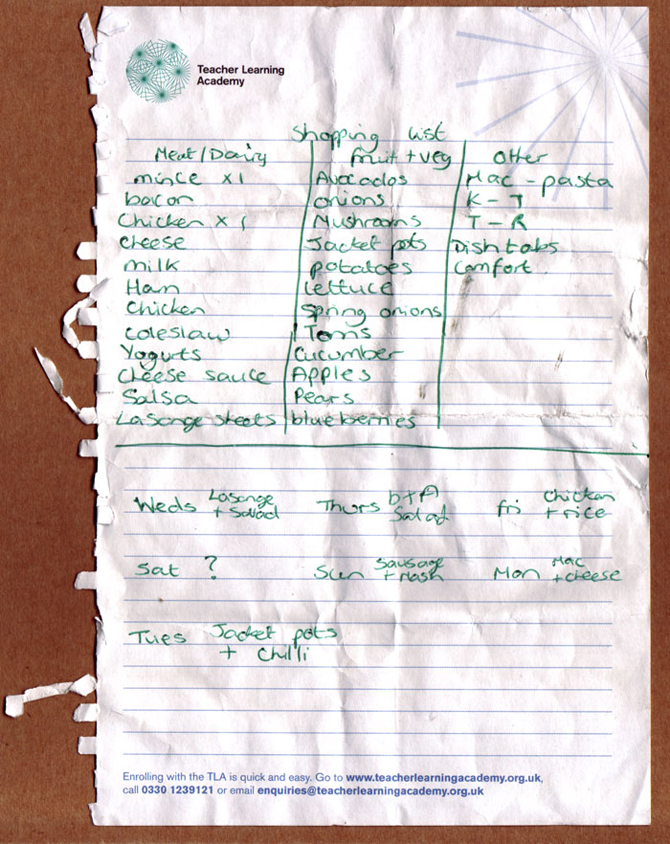 Teacher Learning
Academy
Shopping list
Meat/Dairy fruit + veg other
mince x1 Avocados Mac - pasta
bacon onions K - T
Chicken x 1 Mushrooms T - R
cheese Jacket pots Dish tabs
milk potatoes Comfort
Ham lettuce
Chicken Spring onions
coleslaw Toms
Yogurts Cucumber
cheese sauce Apples
Salsa Pears
Lasange sheets blueberries
Weds Lasange + Salad Thurs b+A Salad fri Chicken + rice
Sat ? Sun Sausage + Mash Mon Mac + cheese
Tues Jacket pots
+ Chilli
Enrolling with the TLA is quick and easy. Go to www.teacherlearningacademy.org.uk,
call 0330 1239121 or email enquiries@teacherlearningacademy.org.uk